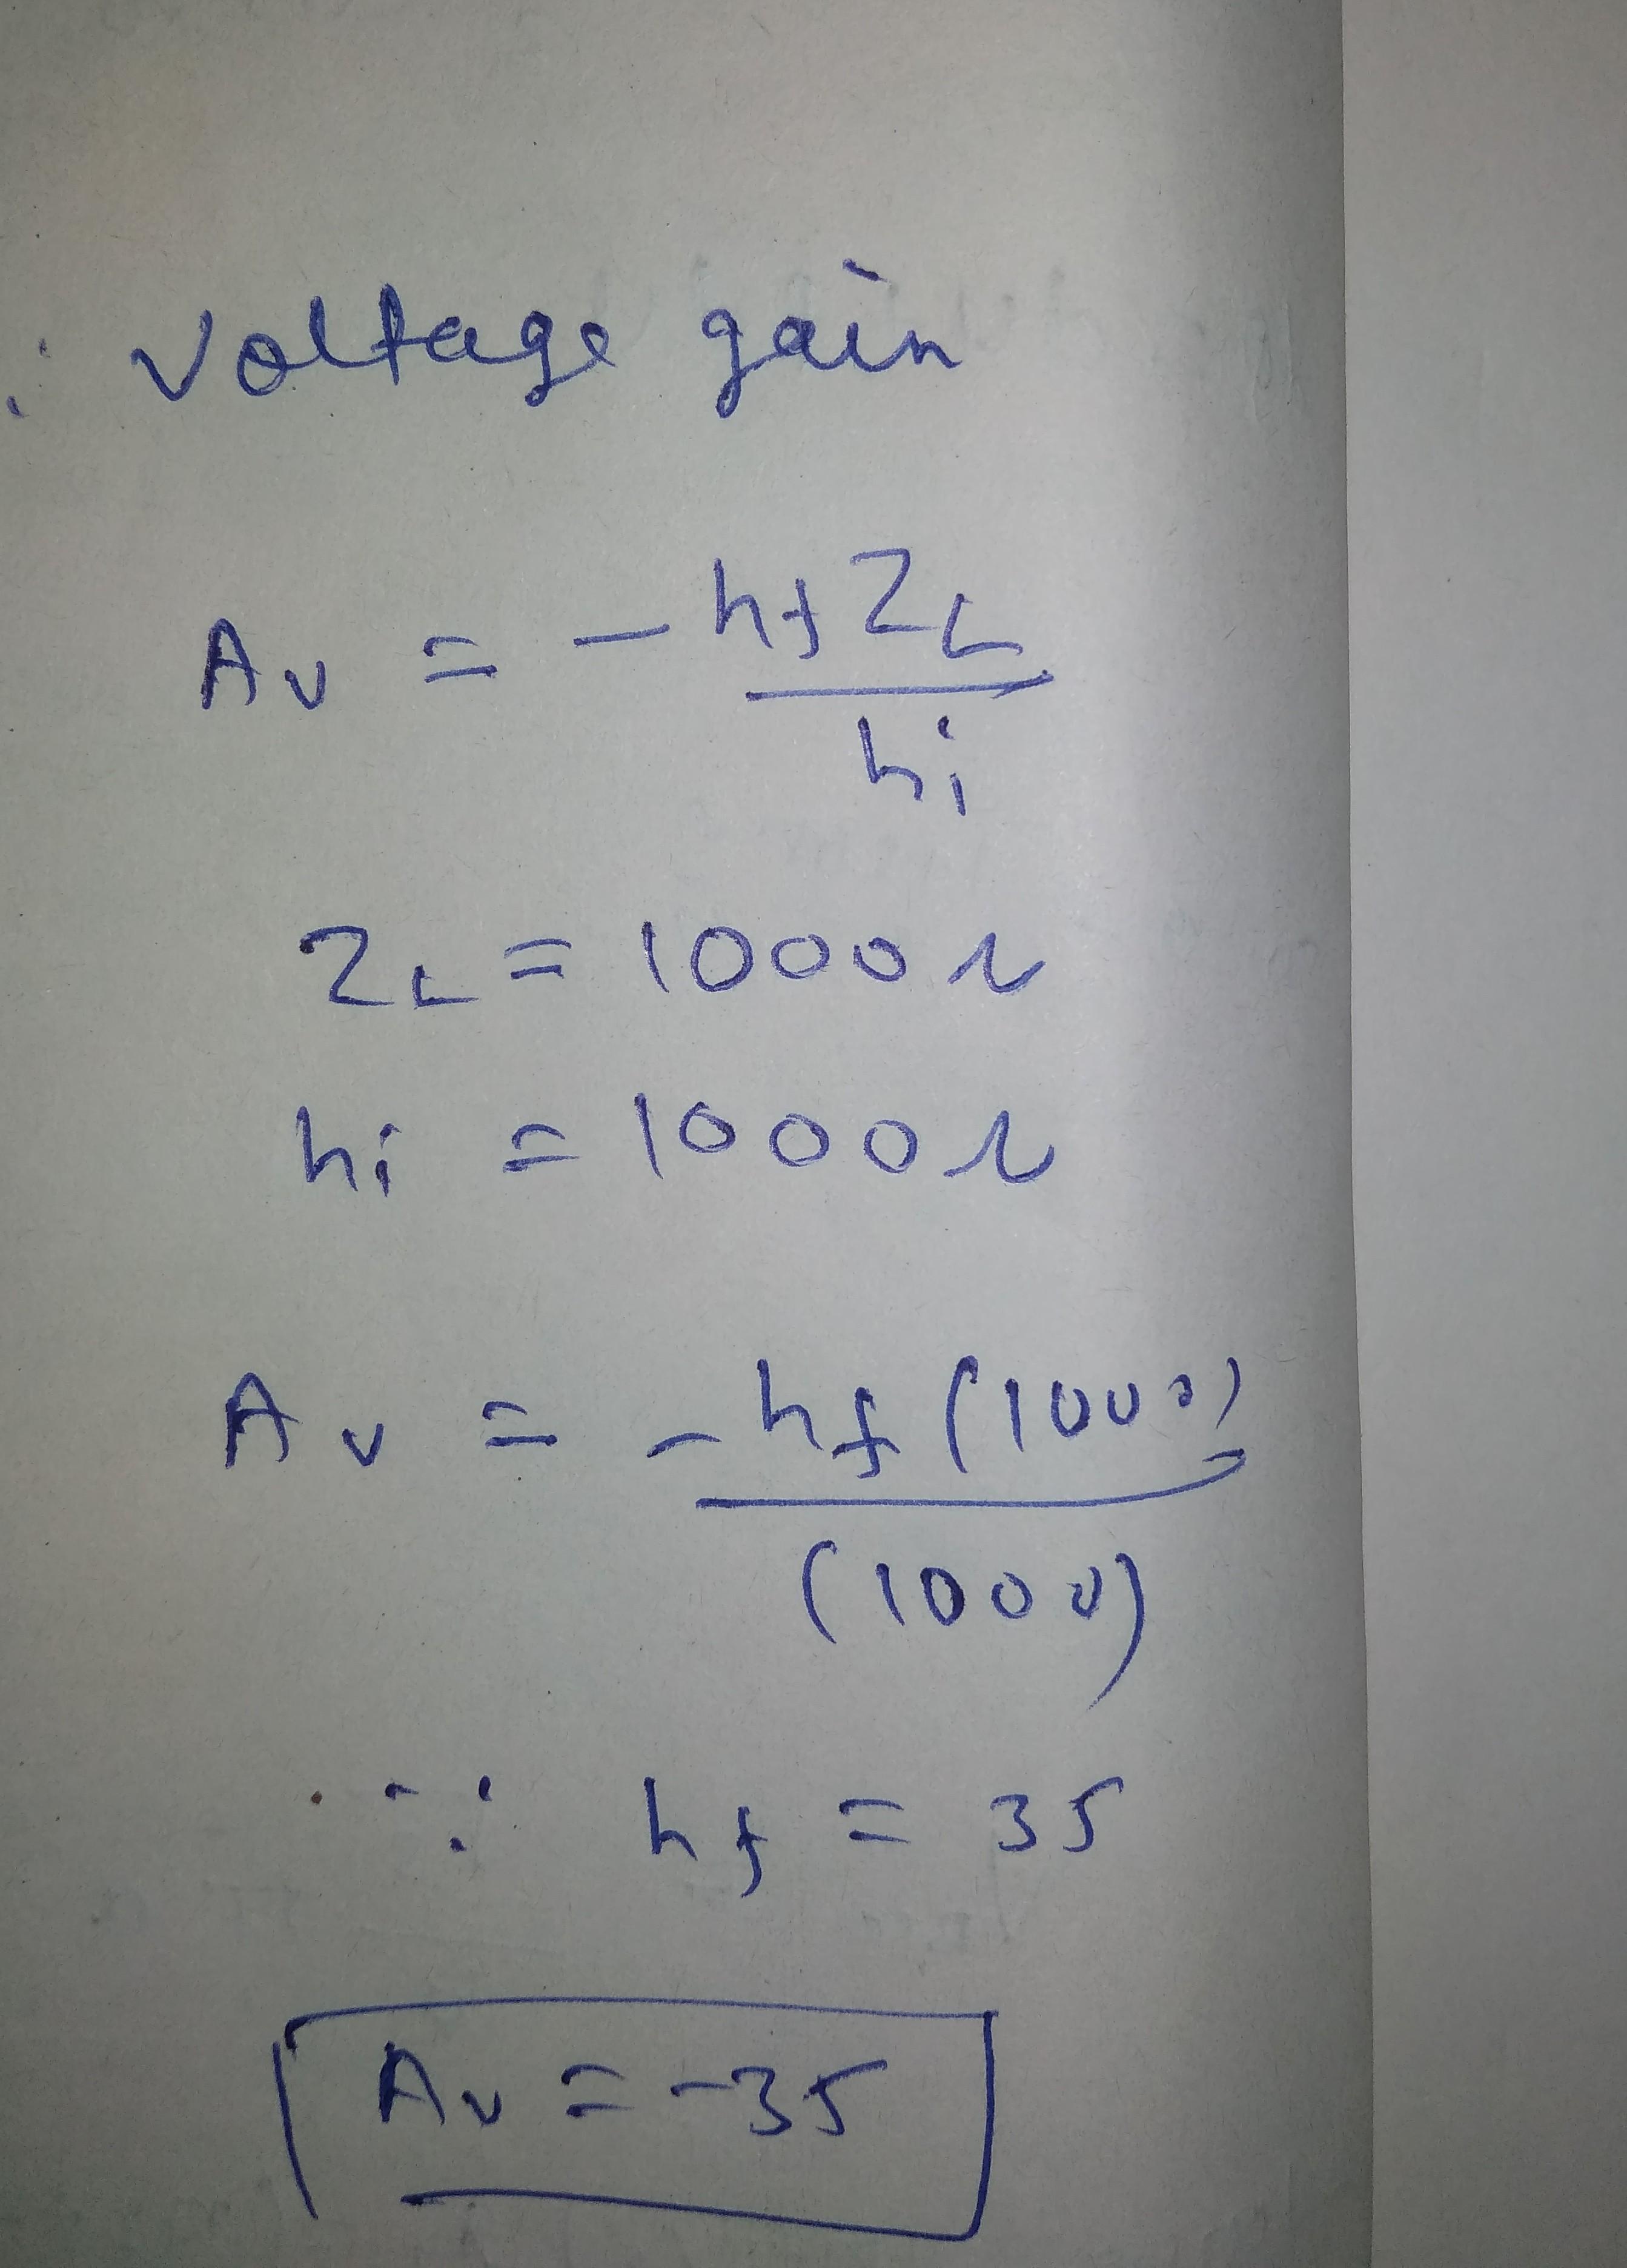 ∴ voltage gain
Av = - hf ZL
hi
ZL = 1000 Ω
hi = 1000 Ω
Av = - hf (1000)
(1000)
∵ hf = 35
Av = -35